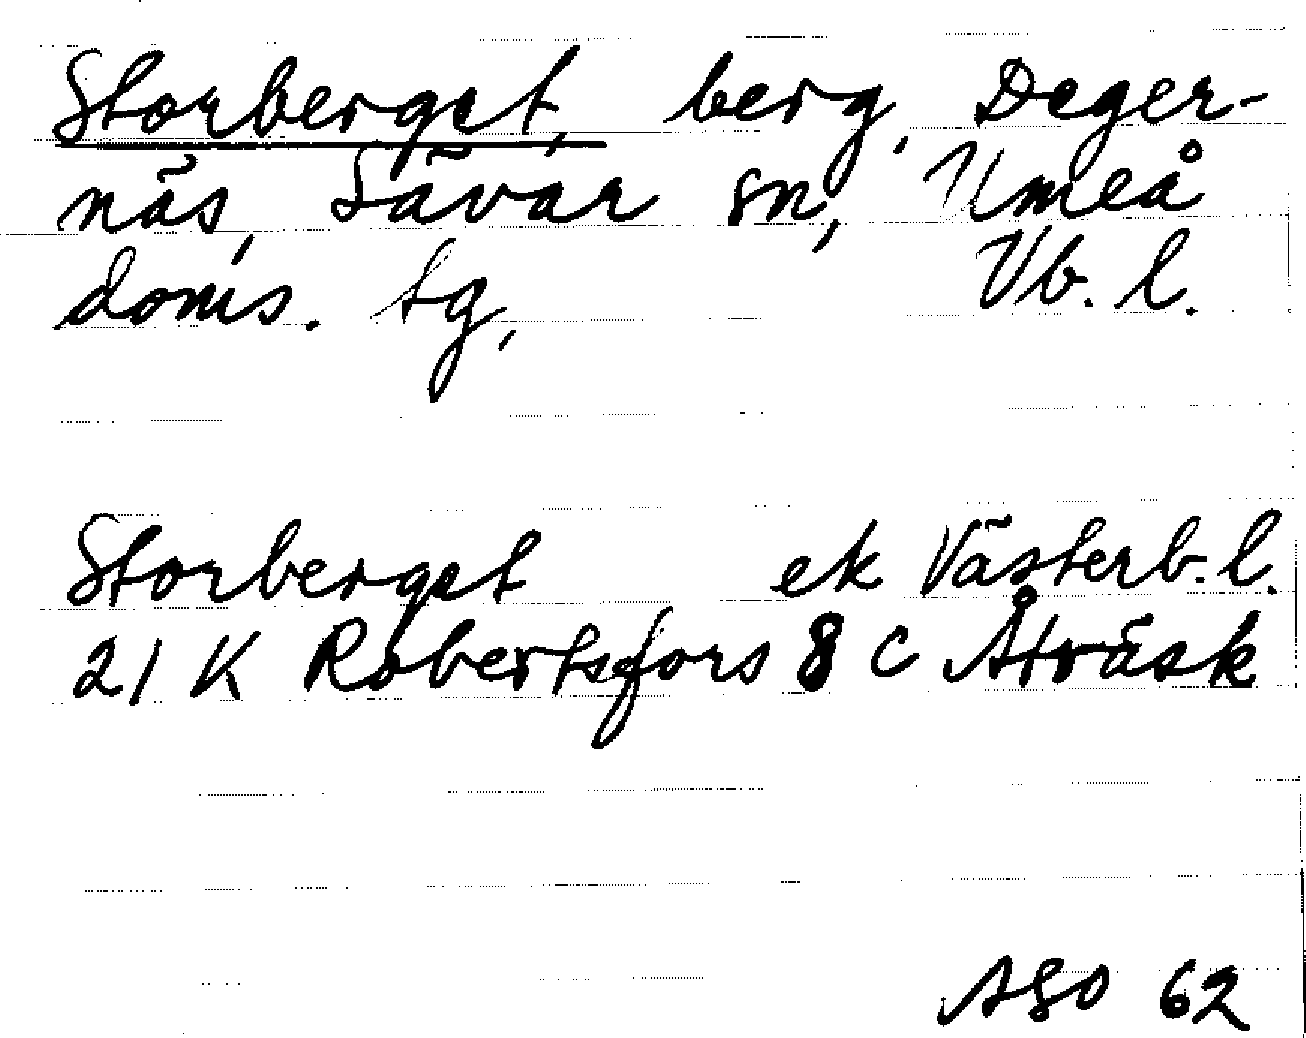 Storberget, berg, Deger-
näs, Sävar sn, Umeå
doms. tg, Vb. l.
Storberget ek Västerb. l.
21 K Robertsfors 8 C Åträsk
ASO 62